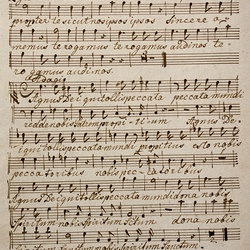 propter te sicut nos ipsos ipsos Sincere a
memus te rogamus te rogamus audi nos te
rogamus audi nos.
Agnus Dei qui tollis peccata peccata mundi
redde nobis Patrem propi-ti-um Agnus De-
i qui tollis peccata mundi propitius esto nobis
peccatoribus nobis pec-ca-toribus
Agnus Dei qui tollis peccata mundi dona nobis
Spiritum nobis Spiritum Sctum dona nobis
Spiritum Sanctum.